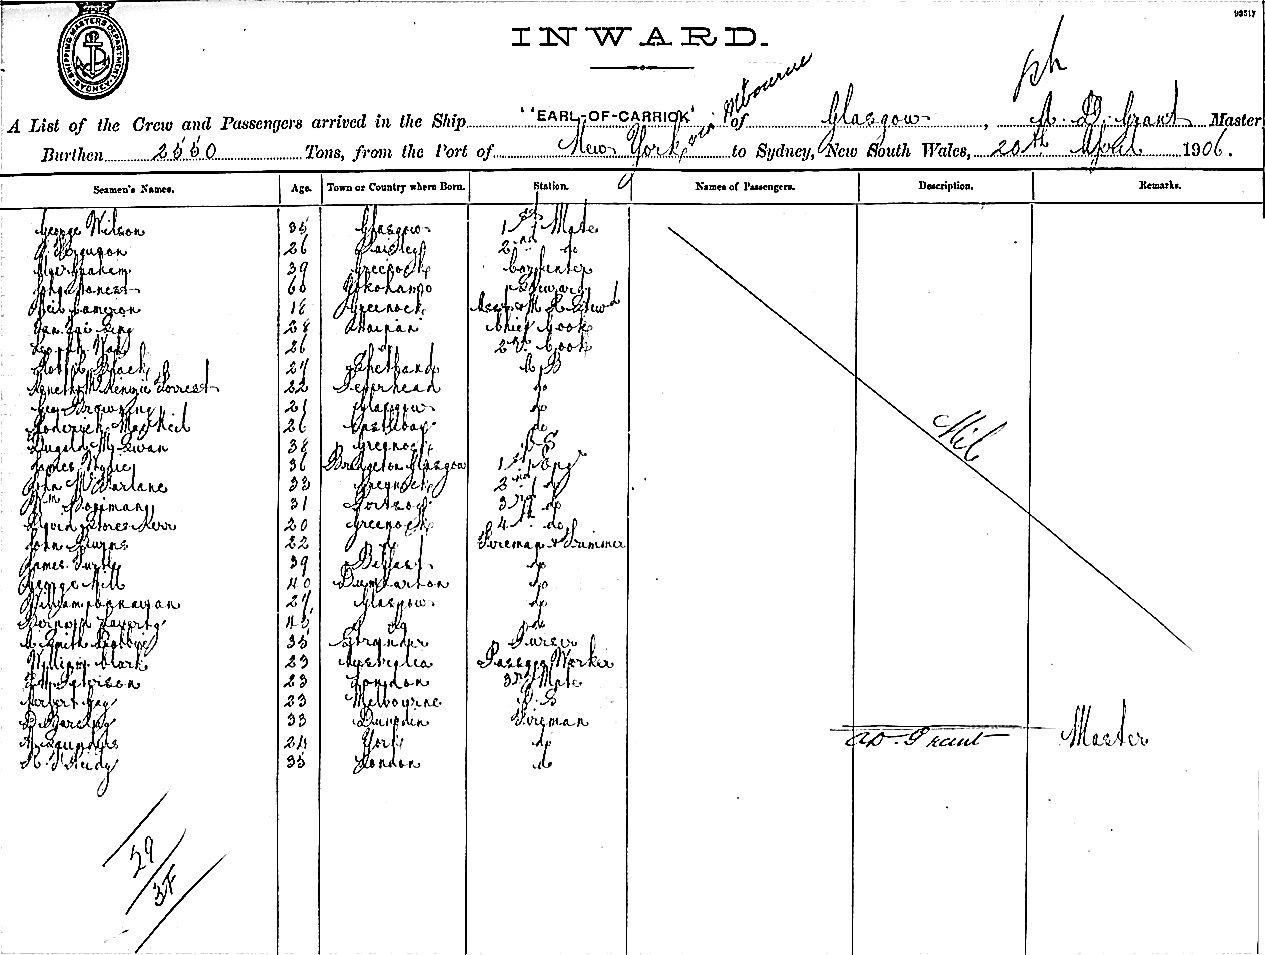 93517
SHIPPING MASTERS DEPARTMENT SYDNEY
INWARD.
A List of the Crew and Passengers arrived in the Ship "EARL-OF-CARRICK" of Glasgow, A. D. Grant Master
Burthen 2550 Tons, from the Port of New York via Melbourne to Sydney, New South Wales, 20th April 1906.
Seamen's Names. Age. Town or Country where Born. Station. Names of Passengers. Description. Remarks.
George Wilson 35 Glasgow 1st Mate
Ferguson 26 Paisley 2nd do
Graham 39 Greenock Carpenter
60 Yokohama Steward
Neil Cameron 18 Greenock
28 Chief Cook
26 do 2nd Cook
Black 27 Shetland A B
Kenneth McKenzie Forrest 22 Peterhead do
Geo Browning 21 Glasgow do
Roderick MacNeil 26 Castlebay do
Dugald McEwan 38 Greenock O S
James Wylie 36 Bridgeton Glasgow 1st Eng
John McFarlane 33 Greenock 2nd do
Wm 31 3rd do
David Kerr 20 Greenock 4th do
John Burns 22 do Fireman & Trimmer
James 39 Belfast do
George Hill 40 Dumbarton do
William Hannagan 27 Glasgow do
45 do do
Smith 35 Purser
William Clark 23 Australia Passage Worker
Paterson 23 London 3rd Mate
Herbert 23 Melbourne O.S
D Barclay 33 Dunedin Fireman
Saunders 24 York do
35 London do
Nil
A D. Grant Master
29